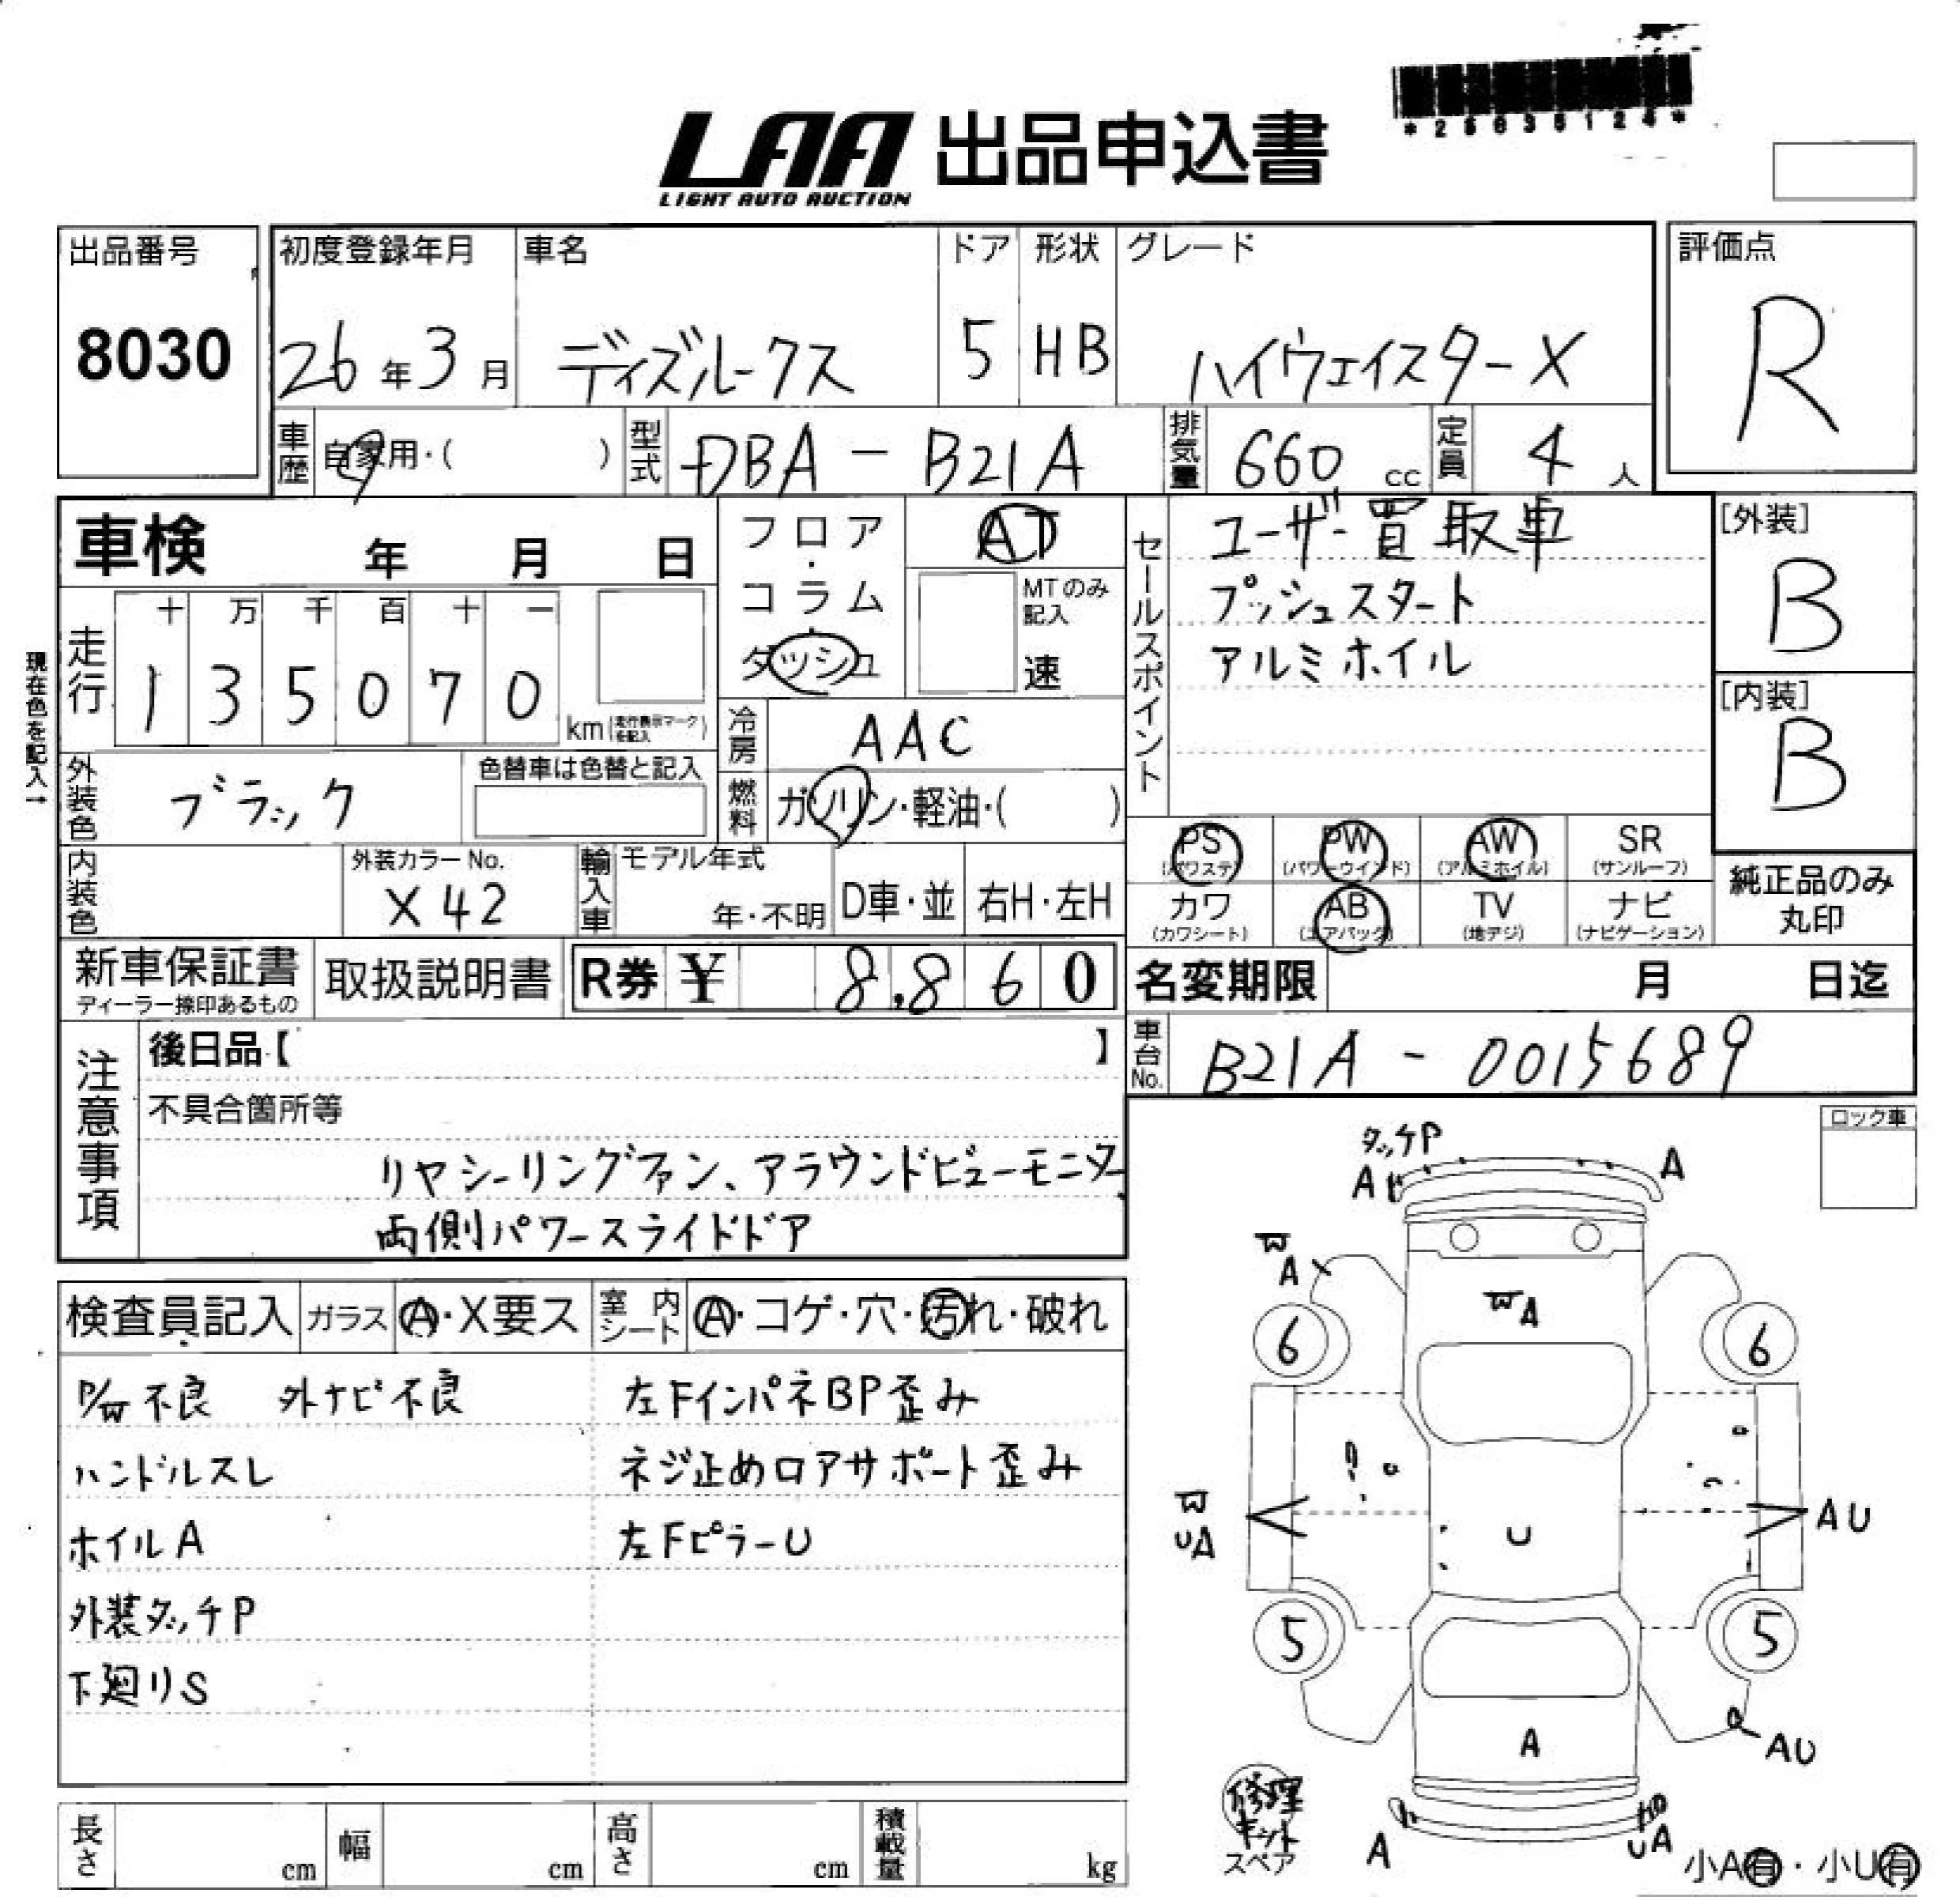 *25035124*
LAA 出品申込書
LIGHT AUTO AUCTION
出品番号
8030
初度登録年月
26年3月
車名
ディズルークス
ドア
5
形状
HB
グレード
ハイウェイスターX
評価点
R
車歴
自家用・( )
型式
DBA-B21A
排気量
660 cc
定員
4 人
車検 年 月 日
現在色を記入→
走行
十 万 千 百 十 一
1 3 5 0 7 0
km(走行表示マークを記入)
フロア・
コラム・
ダッシュ
AT
MTのみ
記入
速
冷房
AAC
燃料
ガソリン・軽油・( )
外装色
ブラック
色替車は色替と記入
内装色
外装カラーNo.
X42
輸入車
モデル年式
年・不明
D車・並
右H・左H
セールスポイント
ユーザー買取車
プッシュスタート
アルミホイル
[外装]
B
[内装]
B
PS
(パワステ)
PW
(パワーウインド)
AW
(アルミホイル)
SR
(サンルーフ)
カワ
(カワシート)
AB
(エアバック)
TV
(地デジ)
ナビ
(ナビゲーション)
純正品のみ
丸印
新車保証書
ディーラー捺印あるもの
取扱説明書
R券 ¥ 8,860
名変期限 月 日迄
車台No.
B21A-0015689
注意事項
後日品【 】
不具合箇所等
リヤシーリングファン、アラウンドビューモニタ、
両側パワースライドドア
検査員記入
ガラス
A・X要ス
室内シート
A・コゲ・穴・汚れ・破れ
P/W不良 外ナビ不良
ハンドルスレ
ホイルA
外装タッチP
下廻りS
左FインパネBP歪み
ネジ止めロアサポート歪み
左FピラーU
ロック車
タッチP
A
A
W
A
WA
6
6
W
UA
U
AU
5
5
A
AU
修理
キット
スペア
A
UA
小A有・小U有
長さ cm
幅 cm
高さ cm
積載量 kg